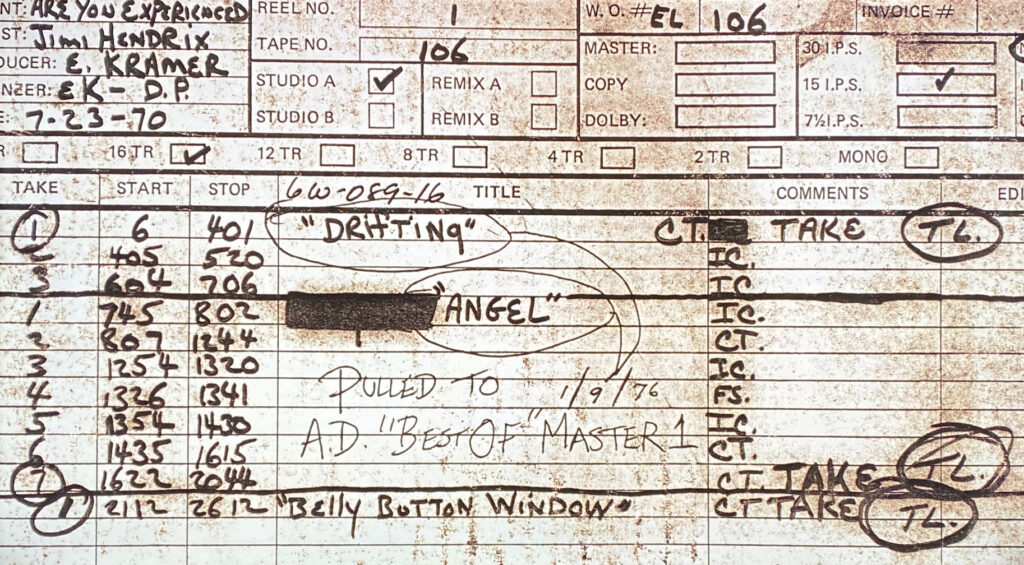 NT: ARE YOU EXPERIENCED REEL NO. 1 W. O. # EL 106 INVOICE #
ST: JIMI HENDRIX TAPE NO. 106
DUCER: E. KRAMER MASTER: 30 I.P.S.
NEER: EK - D.P. STUDIO A ✓ REMIX A COPY 15 I.P.S. ✓
E: 7-23-70 STUDIO B REMIX B DOLBY: 7½ I.P.S.
R 16 TR ✓ 12 TR 8 TR 4 TR 2 TR MONO
TAKE START STOP 6W-089-16 TITLE COMMENTS EDI
1 6 401 "DRIFTING" CT. TAKE TL.
2 405 520 IC.
3 604 706 IC
1 745 802 "ANGEL" IC.
2 807 1244 CT.
3 1254 1320 IC.
4 1326 1341 PULLED TO 1/9/76 FS.
5 1354 1430 A.D. "BEST OF" MASTER 1 IC.
6 1435 1615 CT. TL.
7 1622 2044 CT. TAKE
1 2112 2612 "BELLY BUTTON WINDOW". CT TAKE TL.